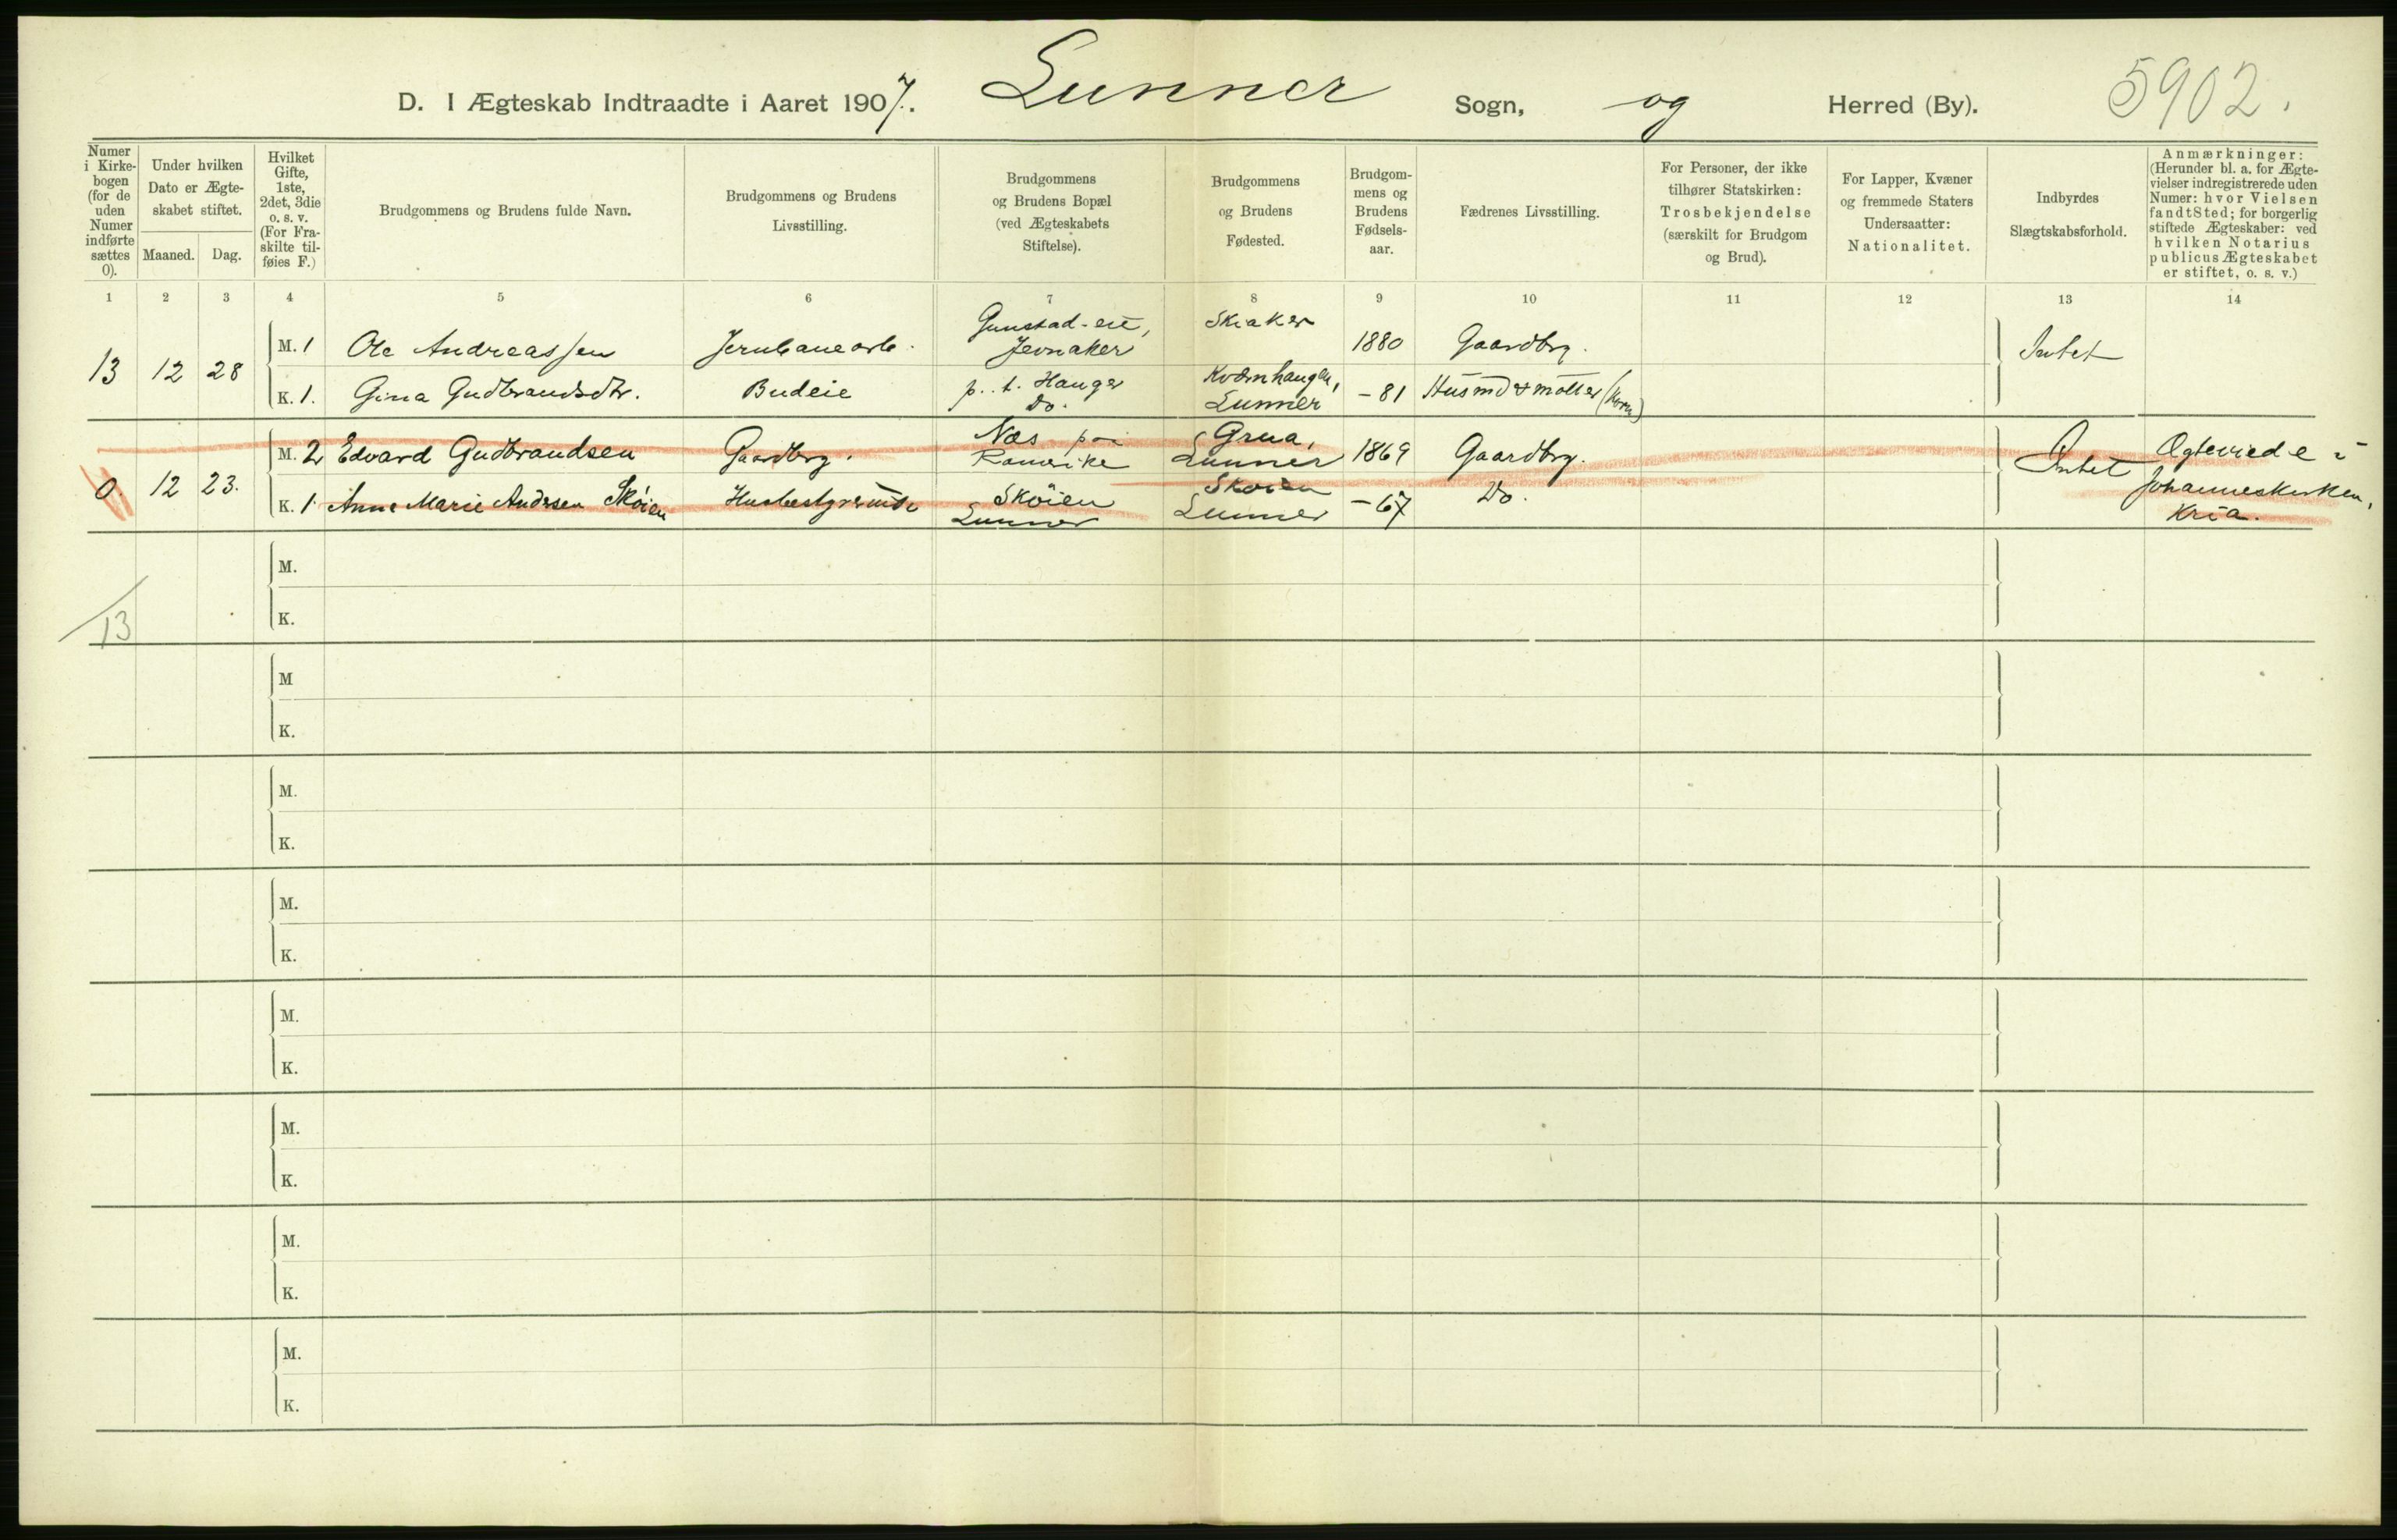 D. I Ægteskab Indtraadte i Aaret 1907. Lunner Sogn, og Herred (By). 5902.
Numer i Kirkebogen (for de uden Numer indførte sættes 0).
Under hvilken Dato er Ægteskabet stiftet.
Maaned. Dag.
Hvilket Gifte, 1ste, 2det, 3die o. s. v. (For Fraskilte tilføies F.)
Brudgommens og Brudens fulde Navn.
Brudgommens og Brudens Livsstilling.
Brudgommens og Brudens Bopæl (ved Ægteskabets Stiftelse).
Brudgommens og Brudens Fødested.
Brudgommens og Brudens Fødselsaar.
Fædrenes Livsstilling.
For Personer, der ikke tilhører Statskirken: Trosbekjendelse (særskilt for Brudgom og Brud).
For Lapper, Kvæner og fremmede Staters Undersaatter: Nationalitet.
Indbyrdes Slægtskabsforhold.
Anmærkninger: (Herunder bl. a. for Ægtevielser indregistrerede uden Numer: hvor Vielsen fandt Sted; for borgerlig stiftede Ægteskaber: ved hvilken Notarius publicus Ægteskabet er stiftet, o. s. v.)
1 2 3 4 5 6 7 8 9 10 11 12 13 14
13 12 28
M. 1 Ole Andreassen Jernbanearb. Jevnaker Skiaker 1880 Gaardbrg. Intet
K. 1. Gina Gudbrandsdtr. Budeie p. t. Hauger Do. Kværnhaugen, Lunner - 81
0. 12 23.
M. 2 Edvard Gudbrandsen Gaardbrg. Næs paa Romerike Grua, Lunner 1869 Gaardbrg. Intet Ægteviede i Johanneskirken, Kria.
K. 1 Anne Marie Andersen Skøien Husbestyrerinde Skøien Lunner Skøien Lunner - 67 Do.
M.
K.
13
M
K.
M.
K.
M.
K.
M.
K.
M.
K.
M.
K.
M.
K.